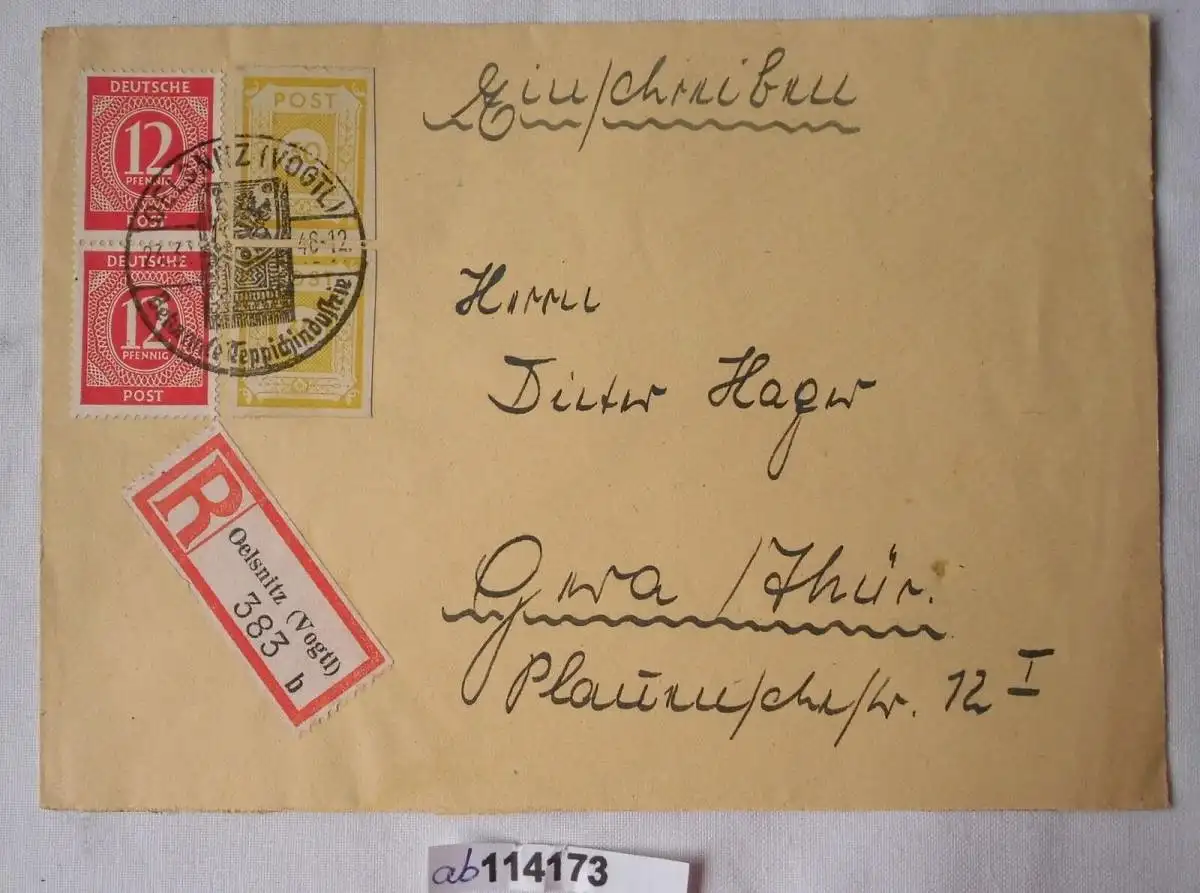 Einschreiben
DEUTSCHE
12
PFENNIG
POST
DEUTSCHE
12
PFENNIG
POST
POST
POST
OELSNITZ (VOGTL)
46-12
Teppichindustrie
Herrn
Dieter Hager
Gera /Thür.
Plauenschestr. 12 I
R
Oelsnitz (Vogtl)
383
b
ab114173